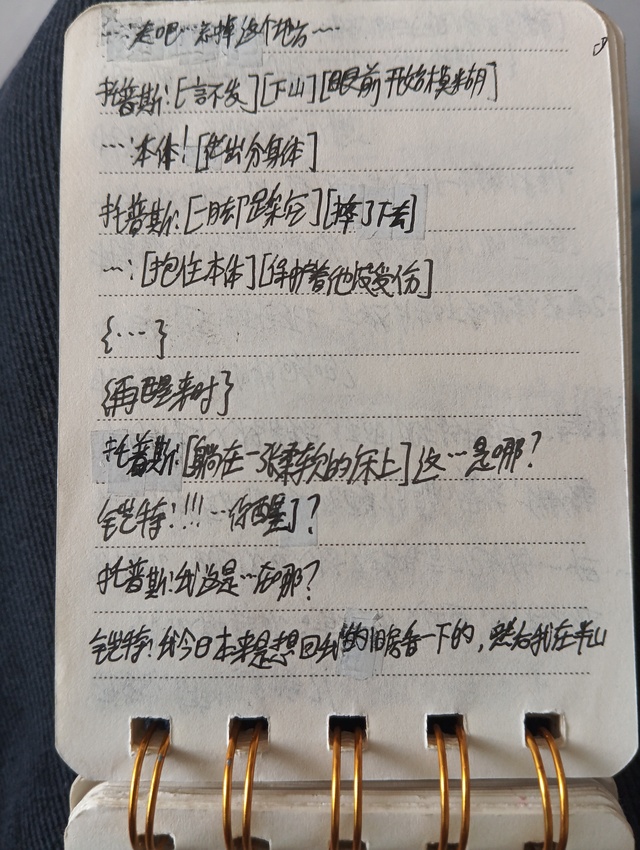 …:走吧…忘掉这个地方…
托普斯:[一言不发][下山][眼前开始模糊]
…:本体![化出分身体]
托普斯:[一脚踩空][摔了下去]
…:[抱住本体][保护着他没受伤]
{…}
{再醒来时}
托普斯:[躺在一张柔软的床上]这…是哪?
特:!!!…你醒了?
托普斯:我这是…在那?
特:我今日本来是想回我的旧居看一下的,然后我在半山